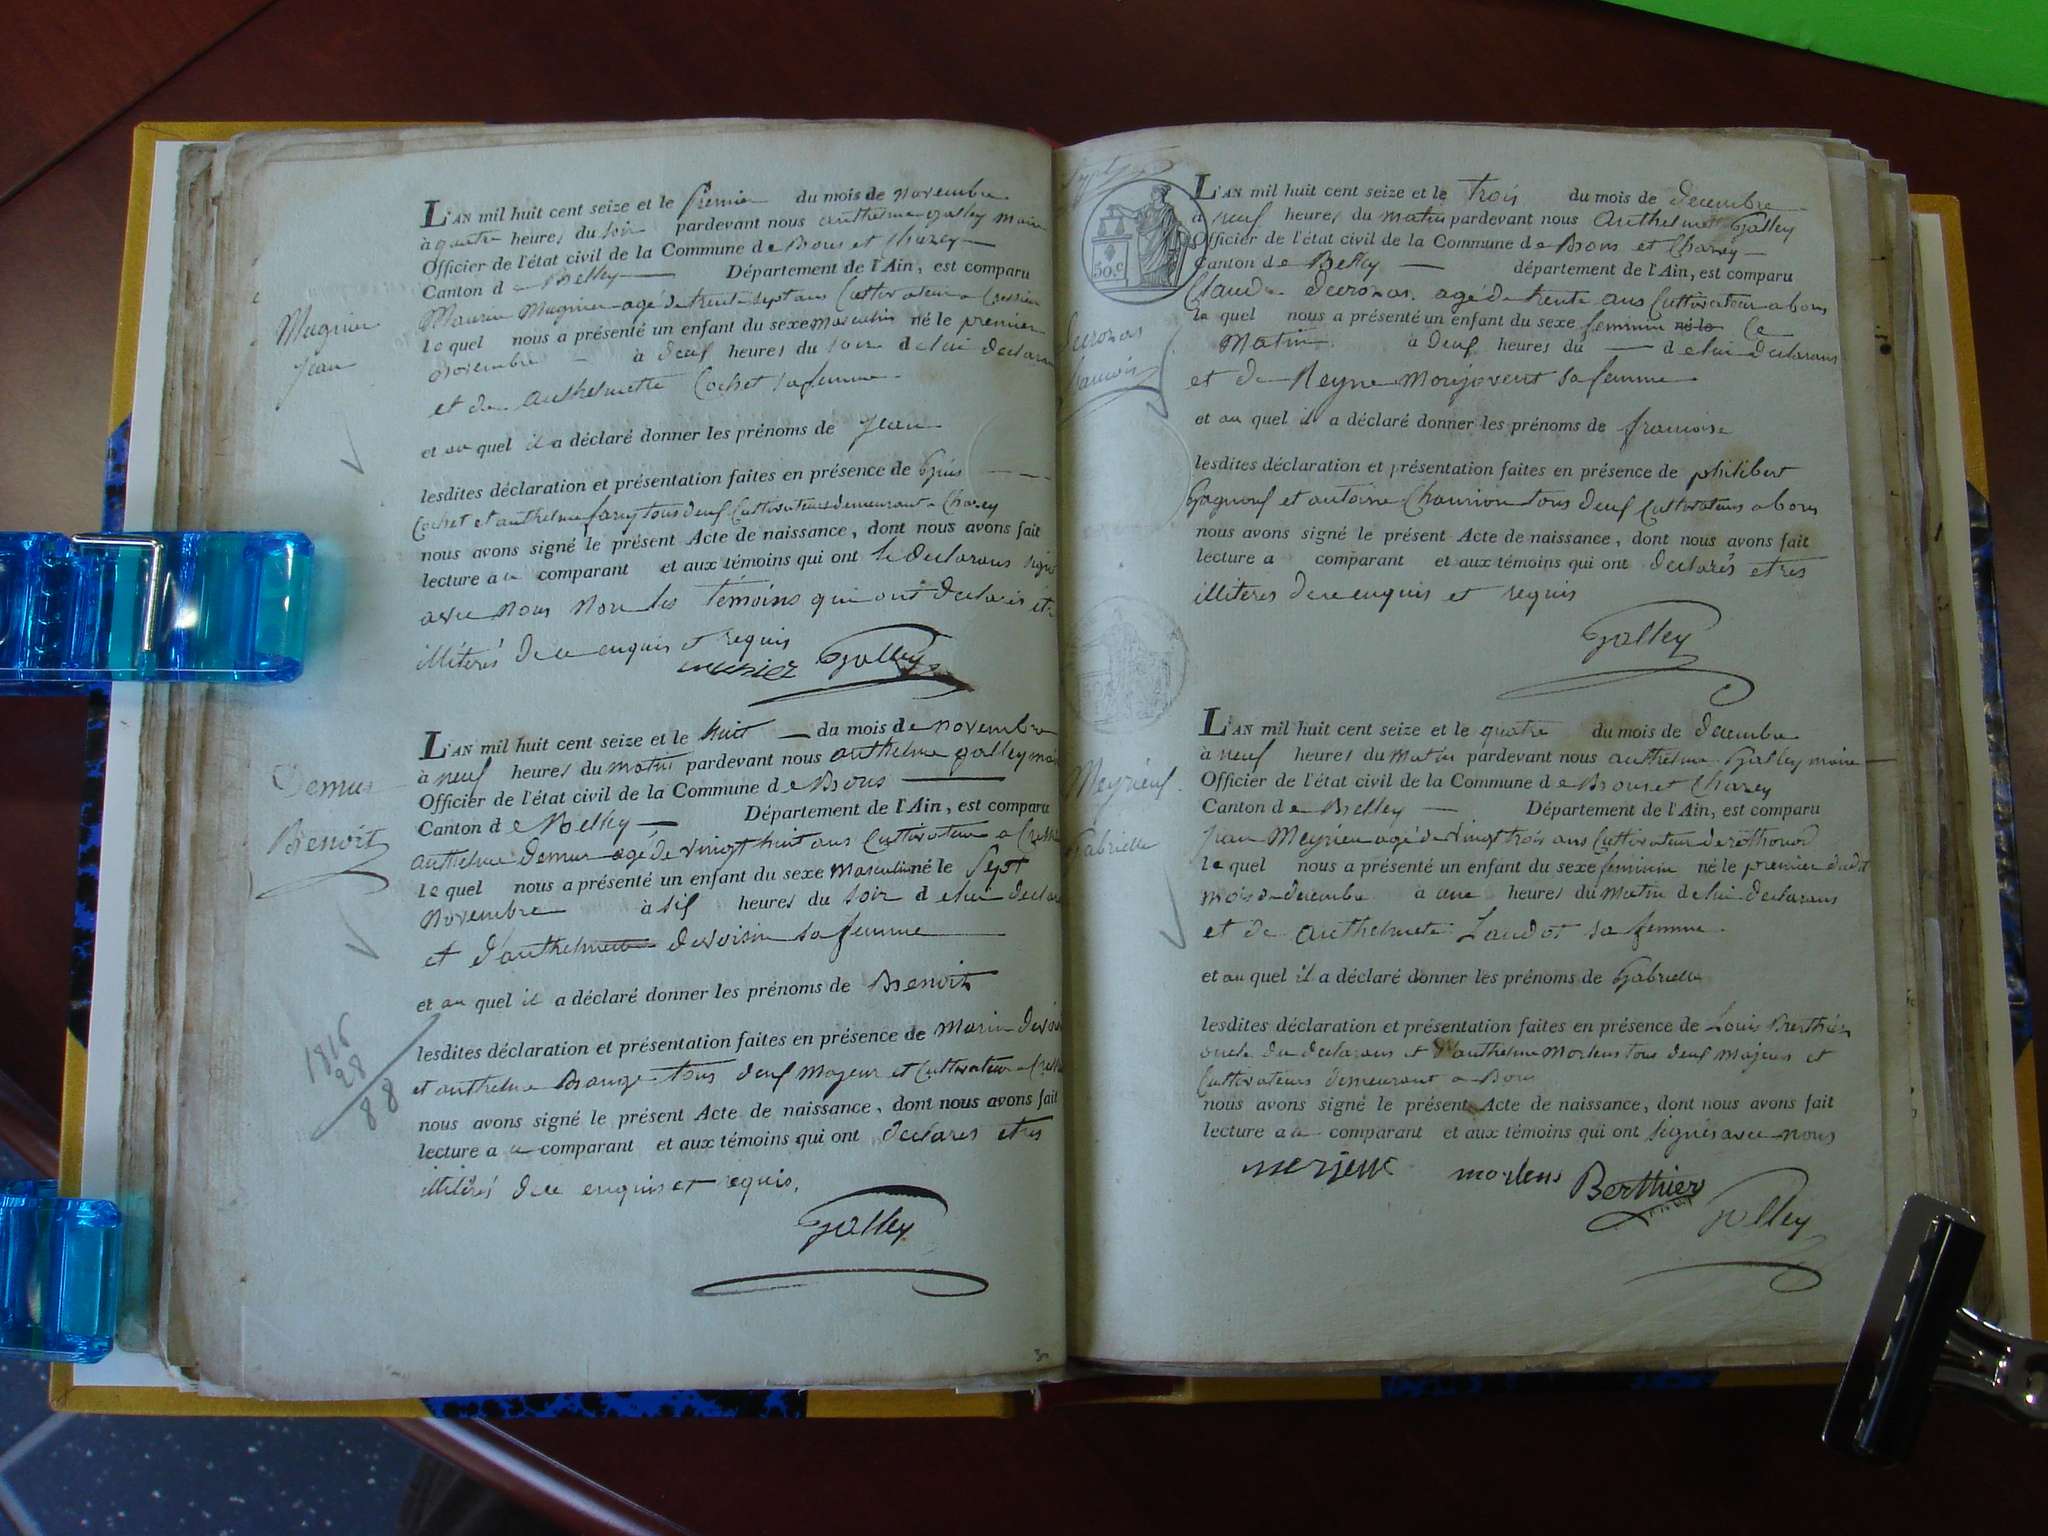 Mugnier
Jean
L'AN mil huit cent seize et le premier du mois de novembre
à quatre heures du soir pardevant nous anthelme galley maire
Officier de l'état civil de la Commune de Brons et Charey
Canton de Belley Département de l'Ain, est comparu
Maurice Mugnier agé de trente sept ans Cultivateur a Cressieu
lequel nous a présenté un enfant du sexe masculin né le premier
novembre à deux heures du soir de lui declarant
et de anthelmette Cochet sa femme
et au quel il a déclaré donner les prénoms de Jean
lesdites déclaration et présentation faites en présence de
Cochet et anthelme tous deux Cultivateurs demeurant a Charey
nous avons signé le présent Acte de naissance, dont nous avons fait
lecture a le comparant et aux témoins qui ont le declarans signé
avec nous non les témoins qui ont declarés etre
illiterés de ce enquis et requis
Galley
Demur
Benoit
L'AN mil huit cent seize et le huit du mois de novembre
à neuf heures du matin pardevant nous anthelme galley
Officier de l'état civil de la Commune de Brons
Canton de Belley Département de l'Ain, est comparu
anthelme Demur agé de vingt huit ans Cultivateur a
le quel nous a présenté un enfant du sexe Masculin né le Sept
Novembre à six heures du soir de lui
et d'anthelmette devoisin sa femme
et au quel il a déclaré donner les prénoms de Benoit
lesdites déclaration et présentation faites en présence de Marin
et anthelme Brange tous deux Majeur et Cultivateur a
nous avons signé le présent Acte de naissance, dont nous avons fait
lecture a le comparant et aux témoins qui ont declarés etres
illiterés de ce enquis et requis,
Galley
1816
28
88
30.c
L'AN mil huit cent seize et le trois du mois de decembre
à neuf heures du matin pardevant nous Anthelme Galley
Officier de l'état civil de la Commune de Brons et Charey
Canton de Belley département de l'Ain, est comparu
Claude Decronas agé de trente ans Cultivateur a bons
le quel nous a présenté un enfant du sexe feminin né le Ce
Matin à deux heures du de lui declarans
et de Reyne Monjovent sa femme
et au quel il a déclaré donner les prénoms de francoise
lesdites déclaration et présentation faites en présence de philibert
Gagneux et antoine Chanrion tous deux Cultivateurs a bons
nous avons signé le présent Acte de naissance, dont nous avons fait
lecture a comparant et aux témoins qui ont declarés etres
illiteres de ce enquis et requis
Galley
Meyrieux
Gabrielle
L'AN mil huit cent seize et le quatre du mois de decembre
à neuf heures du Matin pardevant nous anthelme Galley maire
Officier de l'état civil de la Commune de Brons et Charey
Canton de Belley Département de l'Ain, est comparu
Jean Meyrieu agé de vingt trois ans Cultivateur de
le quel nous a présenté un enfant du sexe feminin né le premier dudit
mois de decembre à une heures du Matin de lui declarans
et de anthelmete Laudot sa femme.
et au quel il a déclaré donner les prénoms de Gabrielle
lesdites déclaration et présentation faites en présence de Louis Berthier
oncle du declarans et d'anthelme Mortens tous deux Majeurs et
Cultivateurs demeurant a Bons
nous avons signé le présent Acte de naissance, dont nous avons fait
lecture a le comparant et aux témoins qui ont signés avec nous
mortens Berthier
Galley